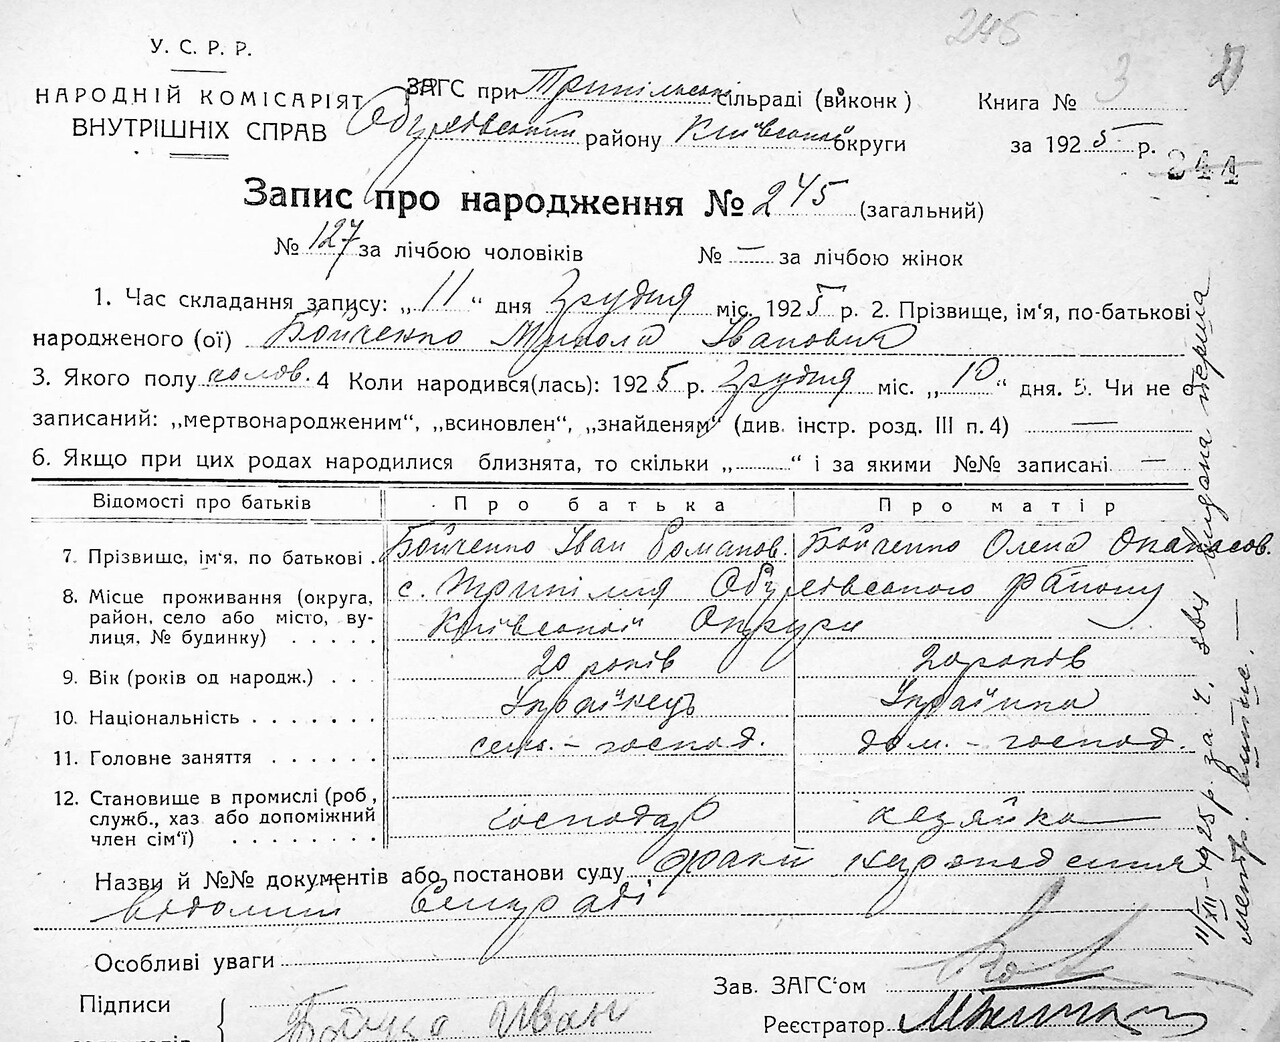 246
У. С. Р. Р.
НАРОДНІЙ КОМІСАРІЯТ
ВНУТРІШНІХ СПРАВ
ЗАГС при Трипільськ. сільраді (виконк)
Обухівський району Київської округи
Книга № 3
за 1925 р.
244
Запис про народження № 245 (загальний)
№ 127 за лічбою чоловіків № — за лічбою жінок
1. Час складання запису: „11“ дня Грудня міс. 1925 р. 2. Прізвище, ім'я, по-батькові
народженого (ої) Бойченко Микола Іванович
3. Якого полу чолов. 4 Коли народився(лась): 1925 р. Грудня міс. „10“ дня. 5. Чи не є
записаний: „мертвонародженим“, „всиновлен“, „знайденям“ (див. інстр. розд. III п. 4) —
6. Якщо при цих родах народилися близнята, то скільки „......“ і за якими №№ записані —
Відомості про батьків Про батька Про матір
7. Прізвище, ім'я, по батькові Бойченко Іван Романов. Бойченко Олена Опанасов.
8. Місце проживання (округа, район, село або місто, вулиця, № будинку) с. Трипілля Обухівського району
Київської Округи
9. Вік (років од народж.) 20 років 20 років
10. Національність Українець Українка
11. Головне заняття сель. - господ. дом. - господ.
12. Становище в промислі (роб, служб., хаз або допоміжний член сім'ї) господар хазяйка
Назви й №№ документів або постанови суду факт народження
відомий Сільраді
Особливі уваги
Підписи
Бойчко Иван
Зав. ЗАГС'ом
Реєстратор
11/XII-1925 р. за ч. 304 видана перша
метр. витяг. —